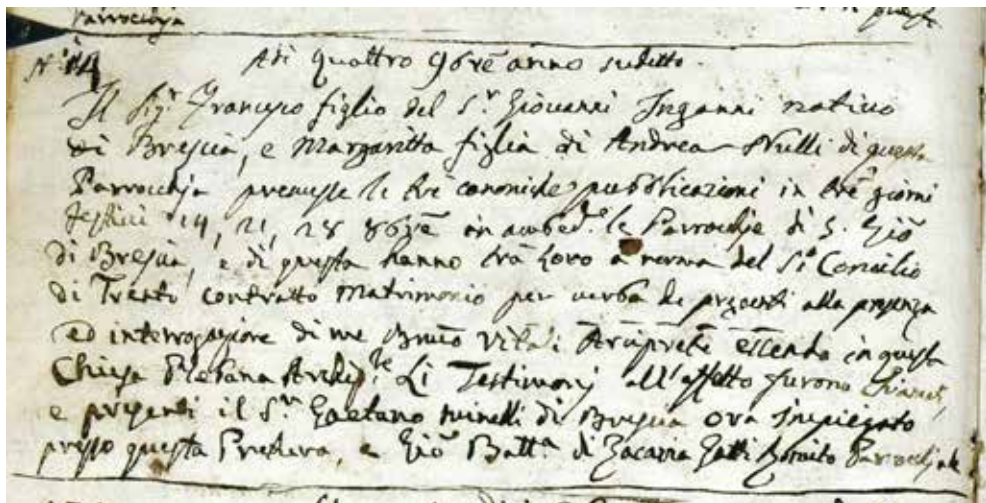 Parrocchja
N.º 14 Adi quattro 9bre anno sudetto.
Il Sig.r Francesco figlio del S.r Giovanni Inganni nativo
di Brescia, e Margaritta figlia di Andrea Nulli di questa
Parrocchja premesse le tre canoniche pubblicazioni in tre giorni
festivi 14, 21, 28 8bre in ambed.e le Parrocchje di S. Gio
di Brescia, e di questa hanno trà loro a norma del S.o Concilio
di Trento contratto Matrimonio per verba de presenti alla presenza
ed interrogazione di me Vitali Arciprete essendo in questa
Chiesa Plebana Li Testimonj all'effetto furono chiamati,
e presenti il S.r Gaetano Minelli di Brescia ora impiegato
presso questa Pretura, e Gio Batt.a di Zacaria Gatti